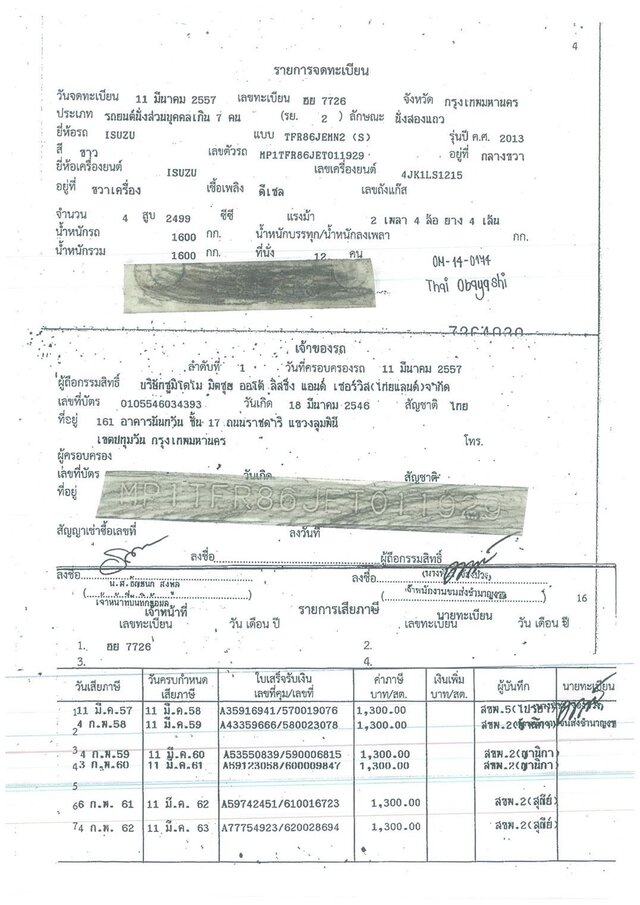 4
รายการจดทะเบียน
วันจดทะเบียน 11 มีนาคม 2557 เลขทะเบียน ฮย 7726 จังหวัด กรุงเทพมหานคร
ประเภท รถยนต์นั่งส่วนบุคคลเกิน 7 คน (รย. 2 ) ลักษณะ นั่งสองแถว
ยี่ห้อรถ ISUZU แบบ TFR86JEMN2 (S) รุ่นปี ค.ศ. 2013
สี ขาว เลขตัวรถ MP1TFR86JET011929 อยู่ที่ กลางขวา
ยี่ห้อเครื่องยนต์ ISUZU เลขเครื่องยนต์ 4JK1LS1215
อยู่ที่ ขวาเครื่อง เชื้อเพลิง ดีเซล เลขถังแก๊ส
จำนวน 4 สูบ 2499 ซีซี แรงม้า 2 เพลา 4 ล้อ ยาง 4 เส้น
น้ำหนักรถ 1600 กก. น้ำหนักบรรทุก/น้ำหนักลงเพลา กก.
น้ำหนักรวม 1600 กก. ที่นั่ง 12 คน
OM-14-0144
Thai Obayashi
เจ้าของรถ
ลำดับที่ 1 วันที่ครอบครองรถ 11 มีนาคม 2557
ผู้ถือกรรมสิทธิ์ บริษัทซูมิโตโม มิตซุย ออโต้ ลิสซิ่ง แอนด์ เซอร์วิส(ไทยแลนด์)จำกัด
เลขที่บัตร 0105546034393 วันเกิด 18 มีนาคม 2546 สัญชาติ ไทย
ที่อยู่ 161 อาคารนันทวัน ชั้น 17 ถนนราชดำริ แขวงลุมพินี
เขตปทุมวัน กรุงเทพมหานคร โทร.
ผู้ครอบครอง
เลขที่บัตร วันเกิด สัญชาติ
ที่อยู่ MP1TFR86JET011929
สัญญาเช่าซื้อเลขที่ ลงวันที่
ลงชื่อ ผู้ถือกรรมสิทธิ์
ลงชื่อ ลงชื่อ
เจ้าหน้าที่บันทึกข้อมูล เจ้าพนักงานขนส่งชำนาญงาน 16
เจ้าหน้าที่ รายการเสียภาษี นายทะเบียน
เลขทะเบียน วัน เดือน ปี เลขทะเบียน วัน เดือน ปี
1. ฮย 7726 2.
3. 4.
วันเสียภาษี วันครบกำหนดเสียภาษี ใบเสร็จรับเงิน เลขที่คุม/เลขที่ ค่าภาษี บาท/สต. เงินเพิ่ม บาท/สต. ผู้บันทึก นายทะเบียน
1 11 มี.ค.57 11 มี.ค.58 A35916941/570019076 1,300.00
2 4 ก.พ.58 11 มี.ค.59 A43359666/580023078 1,300.00
3 4 ก.พ.59 11 มี.ค.60 A53550839/590006815 1,300.00 สขพ.2(ญานิกา)
4 3 ก.พ.60 11 มี.ค.61 A59123058/600009847 1,300.00 สขพ.2(ญานิกา)
5
6 6 ก.พ. 61 11 มี.ค. 62 A59742451/610016723 1,300.00 สขพ.2(สุณีย์)
7 4 ก.พ. 62 11 มี.ค. 63 A77754923/620028694 1,300.00 สขพ.2(สุณีย์)